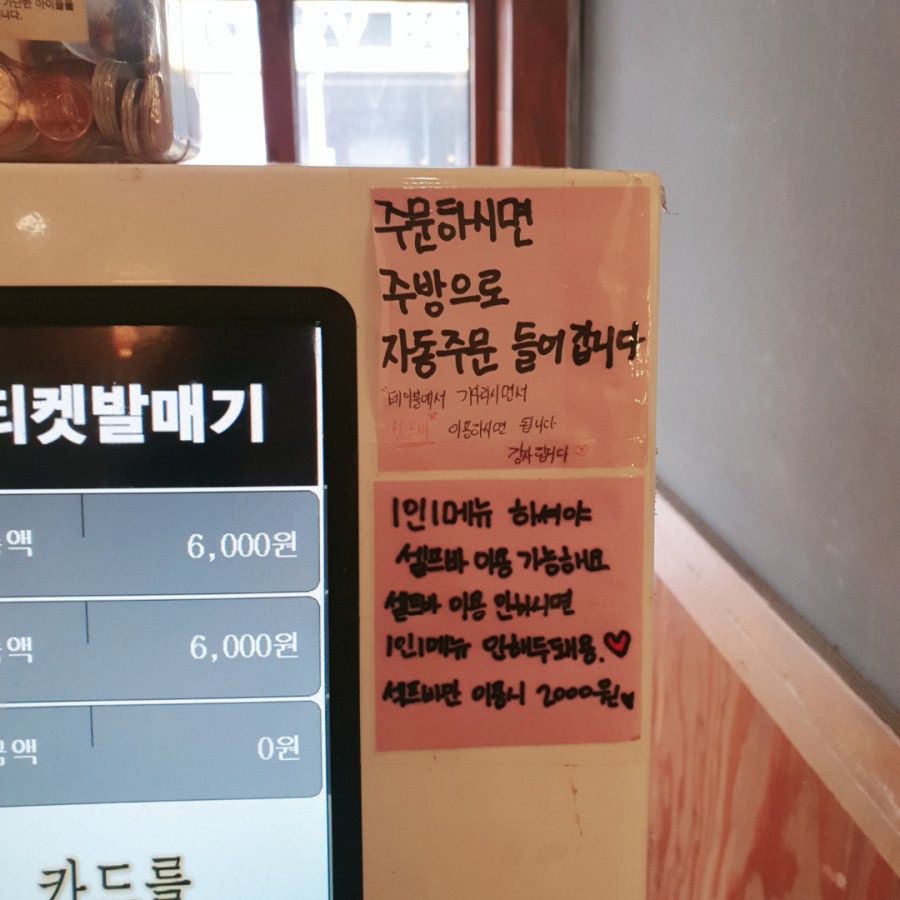 가난한 아이들을
니다.
주문하시면
주방으로
자동주문 들어갑니다
테이블에서 기다리시면서
셀프바 이용하시면 됩니다
감사합니다♡
1인1메뉴 하셔야
셀프바 이용 가능해요
셀프바 이용 안하시면
1인1메뉴 안해두돼용.♥
셀프바만 이용시 2000원♥
티켓발매기
액 6,000원
액 6,000원
금액 0원
카드를